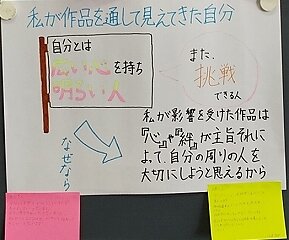 私が作品を通して見えてきた自分
自分とは
広い心を持ち
明るい人
また、
挑戦
できる人
なぜなら
私が影響を受けた作品は
『心』や『絆』が主旨それに
よて、自分の周りの人を
大切にしようと思えるから